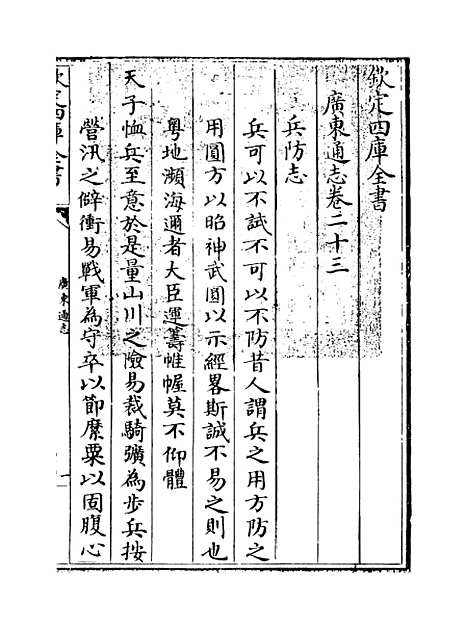 欽定四庫全書
廣東通志卷二十三
兵防志
兵可以不試不可以不防昔人謂兵之用方防之
用圓方以昭神武圓以示經畧斯誠不易之則也
粵地瀕海邇者大臣運籌帷幄莫不仰體
天子恤兵至意於是量山川之險易裁騎彍為步兵按
營汛之僻衝易戰軍為守卒以節縻粟以固腹心
欽定四庫全書
廣東通志
一